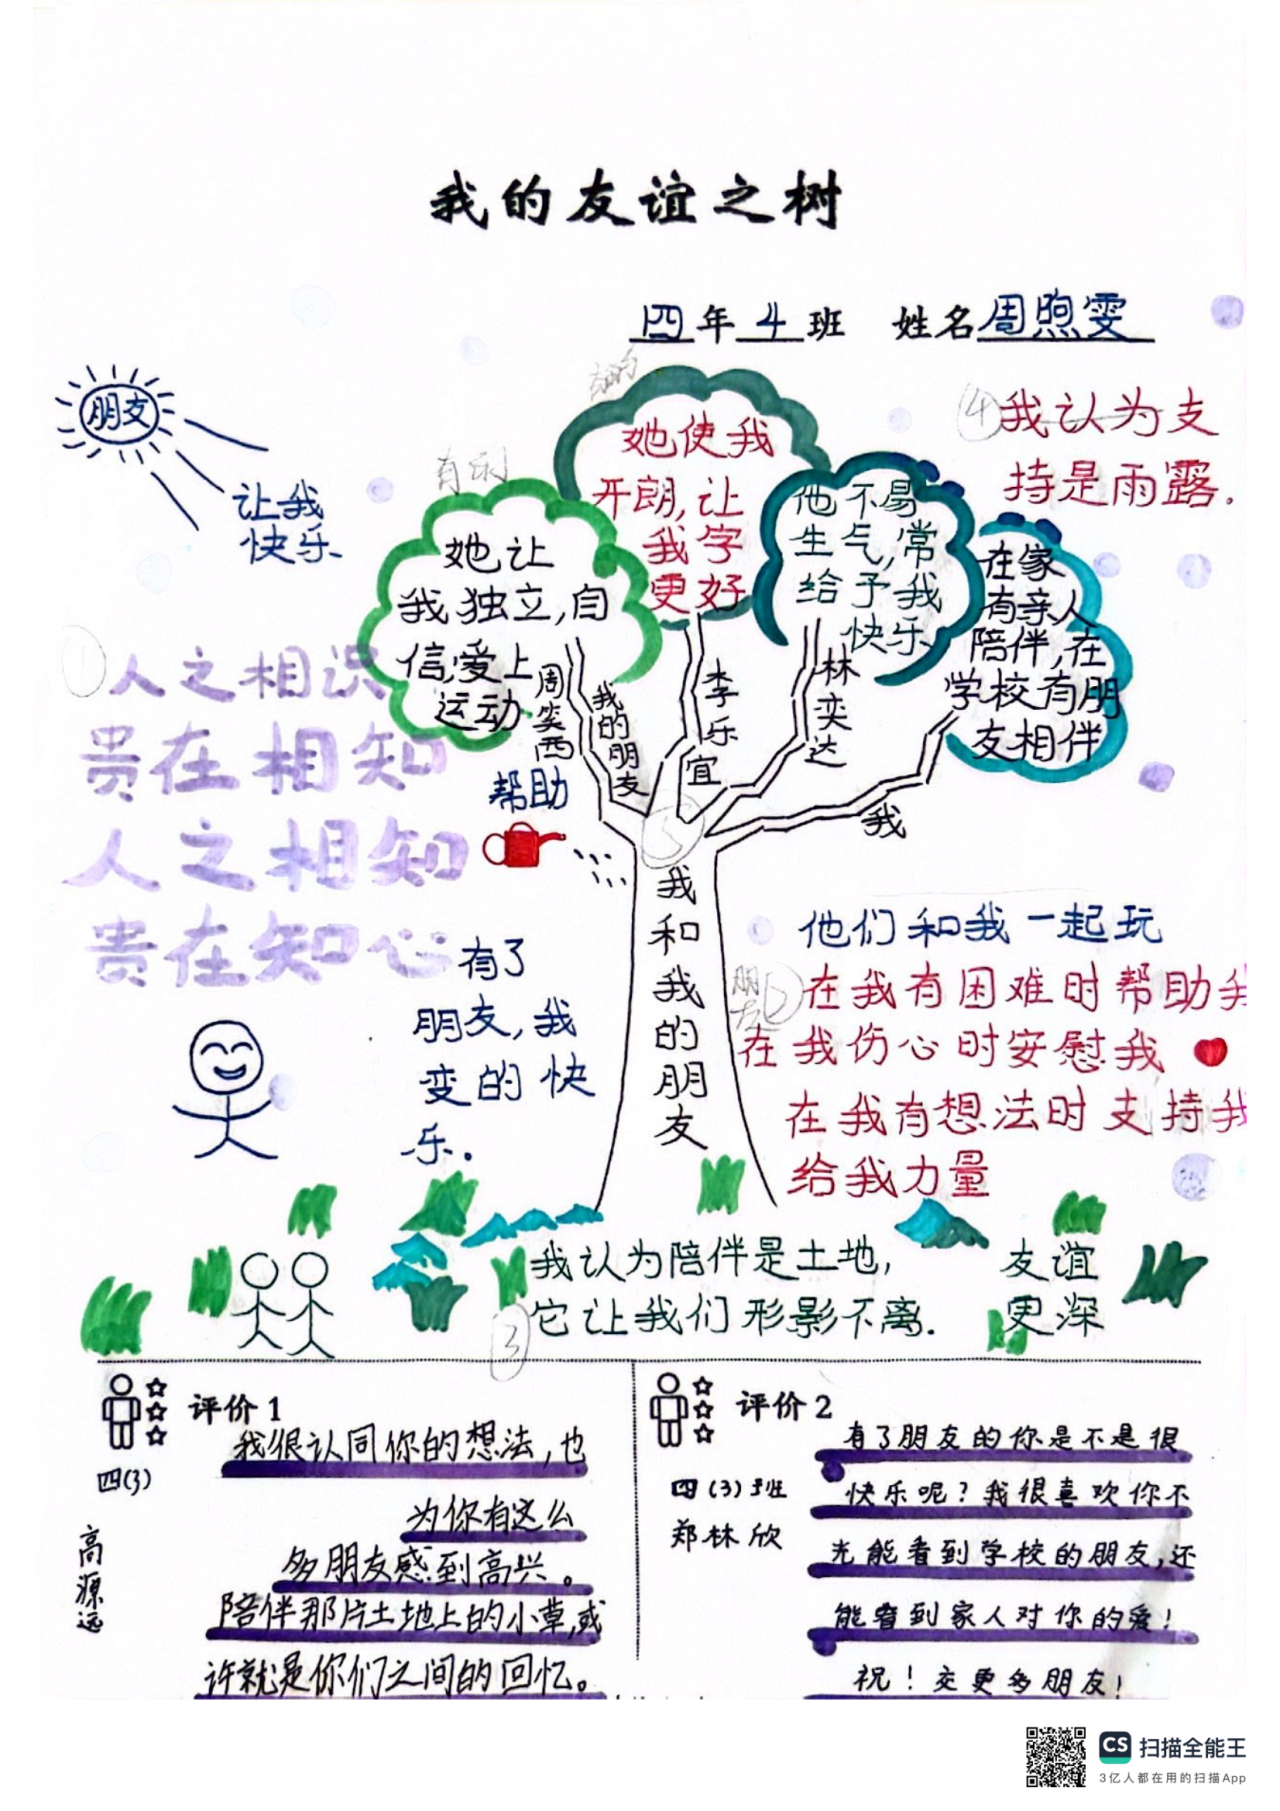 我的友谊之树
四年4班 姓名周煦雯
朋友
让我
快乐
④我认为支
持是雨露.
她使我
开朗,让
我字
更好
她让
我独立,自
信,爱上
运动
他不易
生气,常
给予我
快乐
在家
有亲人
陪伴,在
学校有朋
友相伴
周笑西
我的朋友
李乐宜
林奕达
我
①人之相识
贵在相知
人之相知
贵在知心
帮助
我和我的朋友
有了
朋友,我
变的快
乐.
他们和我一起玩
朋友
②在我有困难时帮助我
在我伤心时安慰我
在我有想法时支持我
给我力量
我认为陪伴是土地,
它让我们形影不离.
③
友谊
更深
评价1
四(3)
高源远
我很认同你的想法,也
为你有这么
多朋友感到高兴。
陪伴那片土地上的小草,或
许就是你们之间的回忆。
评价2
四(3)班
郑林欣
有了朋友的你是不是很
快乐呢?我很喜欢你不
光能看到学校的朋友,还
能看到家人对你的爱!
祝!交更多朋友!
CS 扫描全能王
3亿人都在用的扫描App